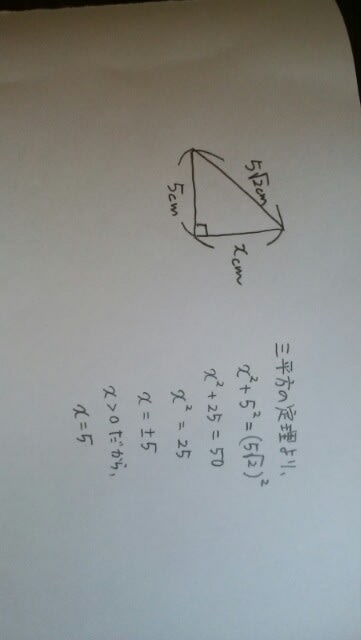 5√2cm
xcm
5cm
三平方の定理より、
x²+5²=(5√2)²
x²+25=50
x²=25
x=±5
x>0だから、
x=5